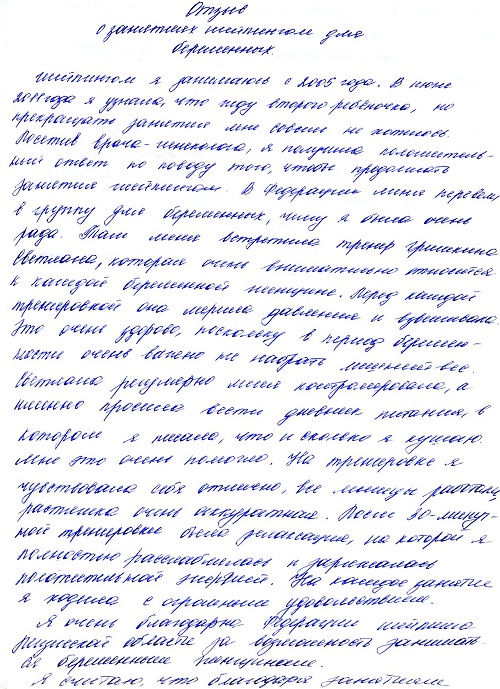 Отзыв
о занятиях шейпингом для
беременных.
Шейпингом я занимаюсь с 2005 года. В июне
2011 года я узнала, что жду второго ребёночка, но
прекращать занятия мне совсем не хотелось.
Посетив врача-гинеколога, я получила положитель-
ный ответ по поводу того, чтобы продолжать
занятия шейпингом. В Федерации меня перевели
в группу для беременных, чему я была очень
рада. Там меня встретила тренер Гришкина
Светлана, которая очень внимательно относится
к каждой беременной женщине. Перед каждой
тренировкой она мерила давление и взвешивала.
Это очень здорово, поскольку в период беремен-
ности очень важно не набрать лишний вес.
Светлана регулярно меня контролировала, а
именно просила вести дневник питания, в
котором я писала, что и сколько я кушаю.
Мне это очень помогло. На тренировке я
чувствовала себя отлично, все мышцы работали,
растяжка очень аккуратная. После 30-минут-
ной тренировке была релаксация, на которой я
полностью расслаблялась и заряжалась
позитивной энергией. На каждое занятие
я ходила с огромным удовольствием.
Я очень благодарна Федерации шейпинга
области за возможность занимать-
ся беременным женщинам.
Я считаю, что благодаря занятиям